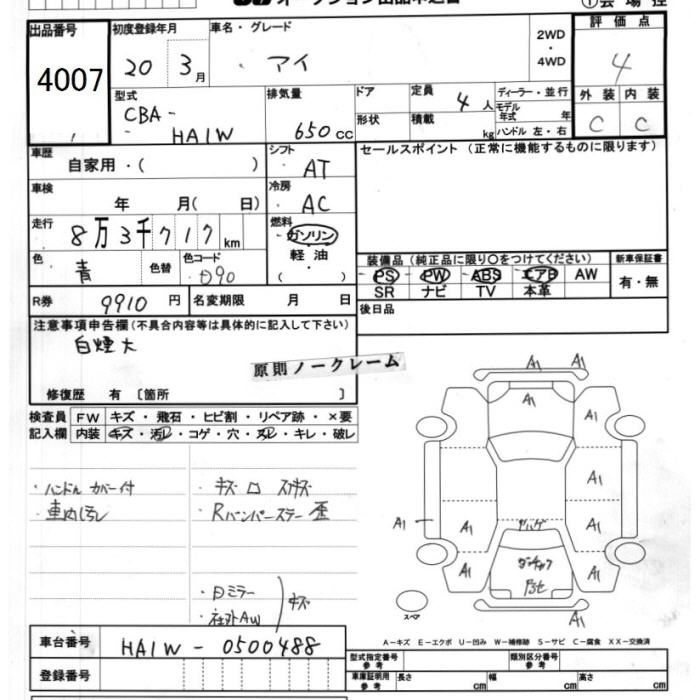 オークション出品申込書 ①会場控
出品番号 初度登録年月 車名・グレード 2WD ・ 4WD 評価点
4007 20 3月 ・アイ 4
型式 排気量 ドア 定員 ディーラー・並行 外装 内装
CBA- 4人 モデル年式 年
HA1W 650cc 形状 積載 kg ハンドル 左・右 C C
車歴 シフト セールスポイント (正常に機能するものに限ります)
自家用・( ) AT
車検 冷房
年 月( 日) AC
走行 燃料
8万3千717km ガソリン
色 色替 色コード 軽油 装備品 (純正品に限り○をつけてください) 新車保証書
青 D90 ・( ) PS PW ABS エアB AW 有・無
SR ナビ TV 本革
R券 9910円 名変期限 月 日 後日品
注意事項申告欄(不具合内容等は具体的に記入して下さい)
白煙大
原則ノークレーム
修復歴 有 〔箇所 〕
検査員 FW キズ・飛石・ヒビ割・リペア跡・×要
記入欄 内装 キズ・汚レ・コゲ・穴・スレ・キレ・破レ
A1 A1
A1 A1
A1
A1 A1 A1
A1 A1
・ハンドルカバー付 ・キズ
・車内汚レ ・Rバンパーステー歪
・ミラー
・社外AW キズ
スペア
A1 A1
A-キズ E-エクボ U-凹み W-補修跡 S-サビ C-腐食 XX-交換済
車台番号 HA1W-0500488 型式指定番号 参考 類別区分番号 参考
登録番号 車庫証明用 参考 長さ cm 幅 cm 高さ cm